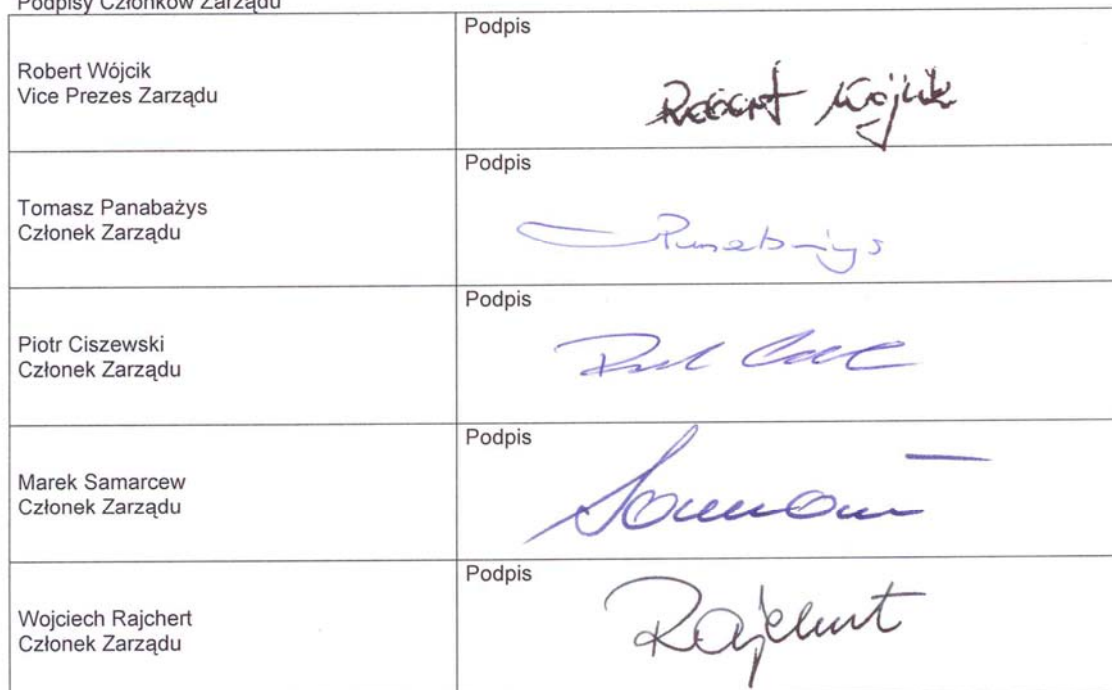 Podpisy Członków Zarządu
Podpis
Robert Wójcik
Vice Prezes Zarządu
Robert Wójcik
Podpis
Tomasz Panabażys
Członek Zarządu
Podpis
Piotr Ciszewski
Członek Zarządu
Podpis
Marek Samarcew
Członek Zarządu
Podpis
Wojciech Rajchert
Członek Zarządu
Rajchert